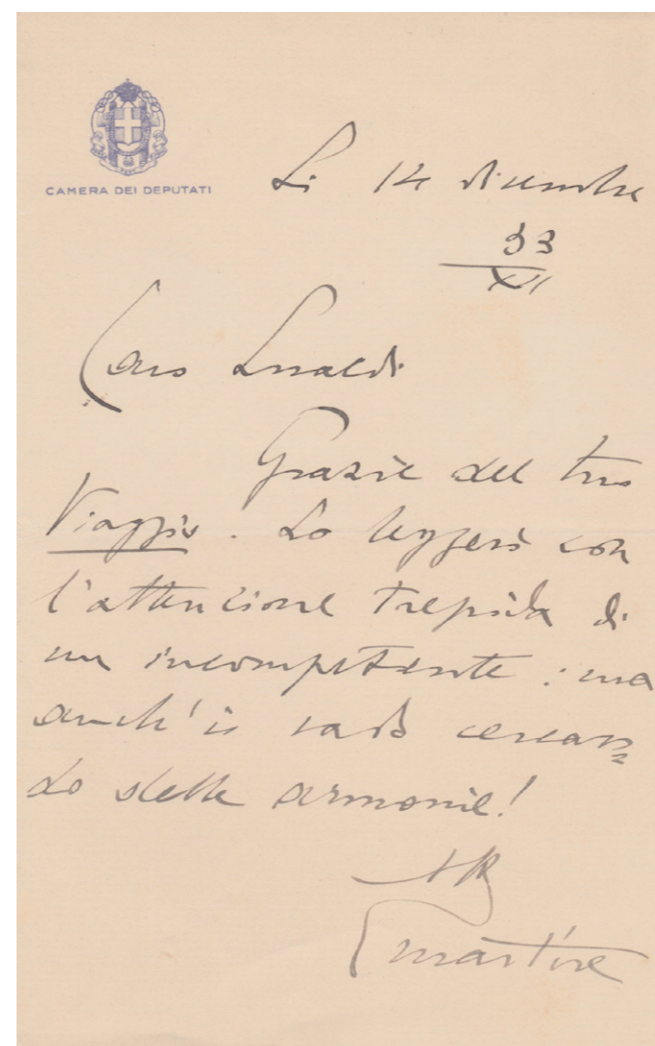 CAMERA DEI DEPUTATI
Lì 14 dicembre
33
XII
Caro Lualdi
Grazie del tuo
Viaggio. Lo leggerò con
l'attenzione trepida di
un incompetente: ma
anch'io vado cercan=
do delle armonie!
Martire